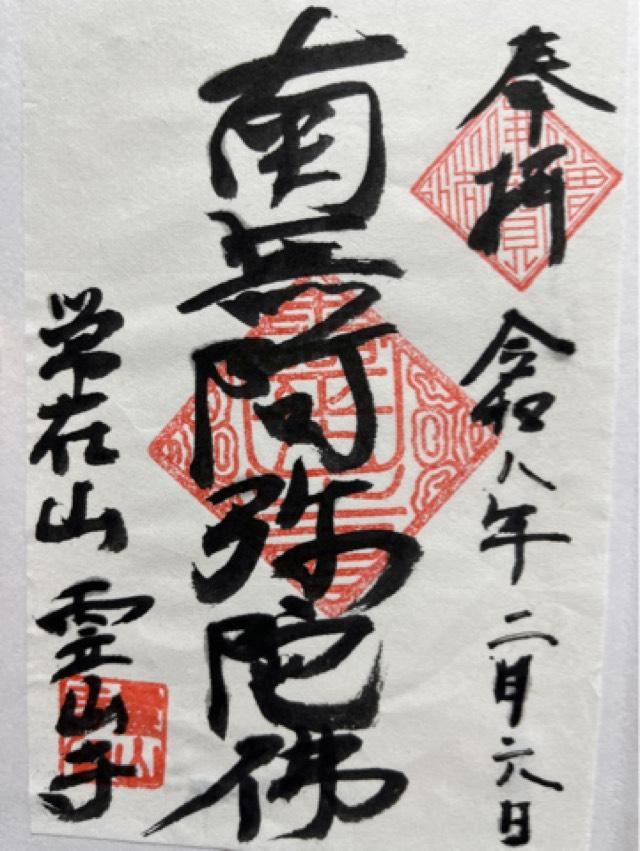 奉拝 令和八年 二月六日
南無阿弥陀佛
常在山 霊山寺